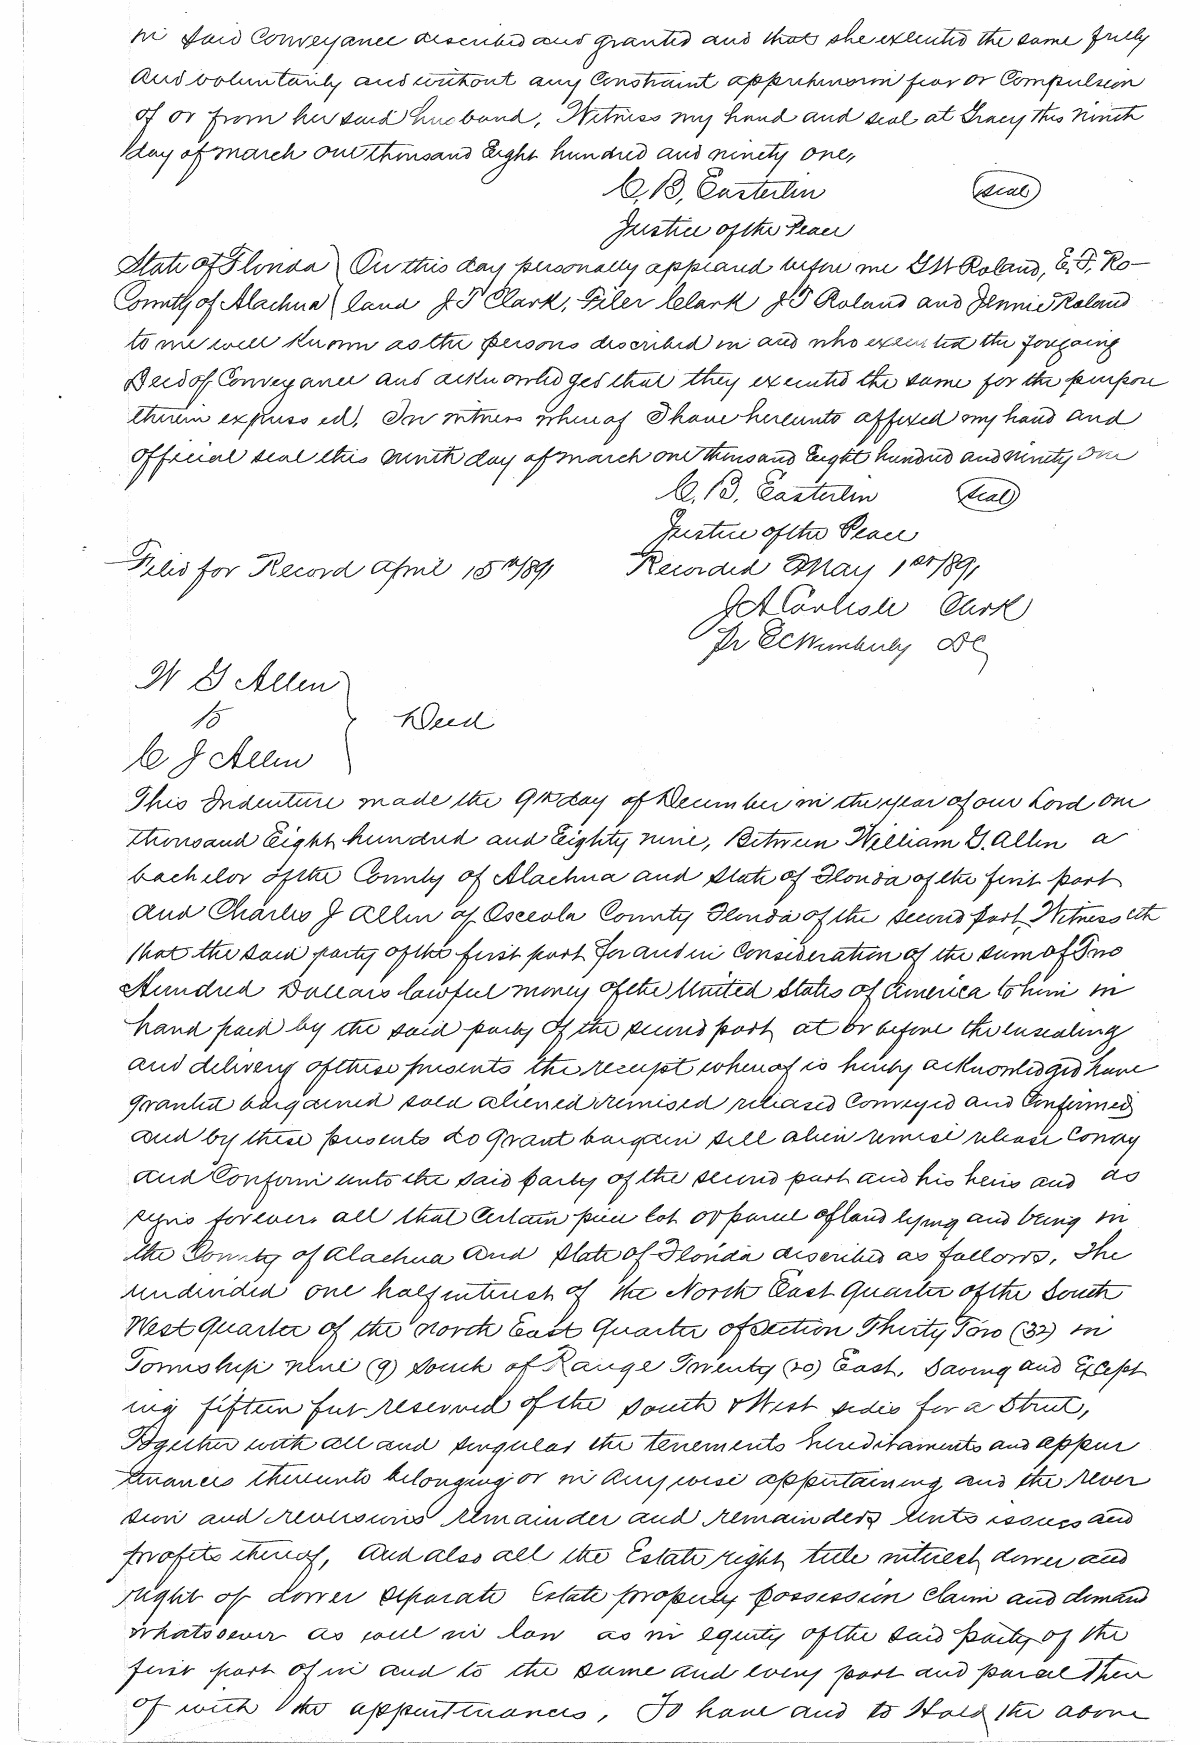 in said Conveyance described and granted and that she executed the same freely
and voluntarily and without any Constraint apprehension fear or Compulsion
of or from her said husband, Witness my hand and seal at Tracy this ninth
day of march one thousand Eight hundred and ninety one,
C. B. Easterlin (seal)
Justice of the Peace
State of Florida } On this day personally appeared before me G W Roland, E. F. Ro-
County of Alachua } land J T Clark, Filer Clark J T Roland and Jennie Roland
to me well Known as the persons described in and who executed the foregoing
Deed of Conveyance and acknowledged that they executed the same for the purpose
therein expressed. In witness whereof I have hereunto affixed my hand and
official seal this ninth day of march one thousand Eight hundred and ninety one
C. B. Easterlin (seal)
Justice of the Peace
Filed for Record April 15th/891 Recorded May 1st/891
J A Carlisle Clerk
Pr E C Wimberly DC
W G Allen }
to } Deed
C J Allen }
This Indenture made the 9th day of December in the year of our Lord one
thousand Eight hundred and Eighty nine, Between William G. Allen a
bachelor of the County of Alachua and State of Florida of the first part
and Charles J Allen of Osceola County Florida of the second part, Witnesseth
that the said party of the first part for and in Consideration of the sum of Two
Hundred Dollars lawful money of the United States of America to him in
hand paid by the said party of the second part at or before the ensealing
and delivery of these presents the receipt whereof is hereby acknowledged have
granted bargained sold aliened remised released Conveyed and Confirmed
and by these presents do grant bargain sell alien remise release Convey
and Confirm unto the said party of the second part and his heirs and as
signs forever, all that Certain piece lot or parcel of land lying and being in
the County of Alachua and State of Florida described as follows, The
undivided one half interest of the North East Quarter of the South
West Quarter of the north East Quarter of section Thirty Two (32) in
Township nine (9) south of Range Twenty (20) East, Saving and Except
ing fifteen feet reserved of the south & West sides for a Street,
Together with all and singular the tenements hereditaments and appur
tenances thereunto belonging or in anywise appertaining and the rever
sion and reversions remainder and remainders rents issues and
profits thereof, And also all the Estate right title interest dower and
right of dower separate Estate property possession Claim and demand
whatsoever as well in law as in equity of the said party of the
first part of in and to the same and every part and parcel there
of with the appurtenances, To have and to Hold the above